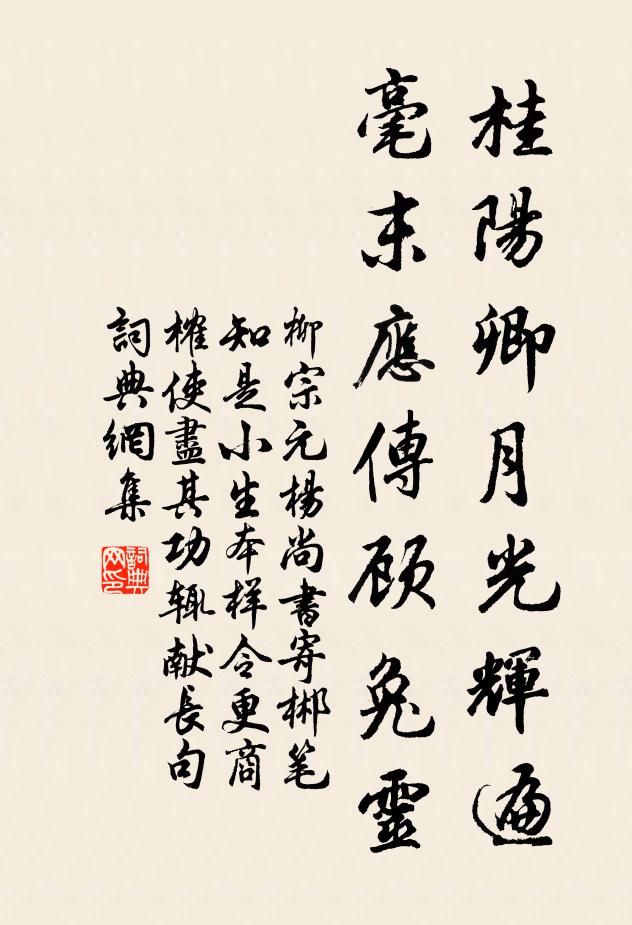 桂陽卿月光輝遍
毫末應傳顧兔靈
柳宗元楊尚書寄郴笔
知是小生本样令更商
榷使盡其功輒献長句
詞典網集
詞典网印